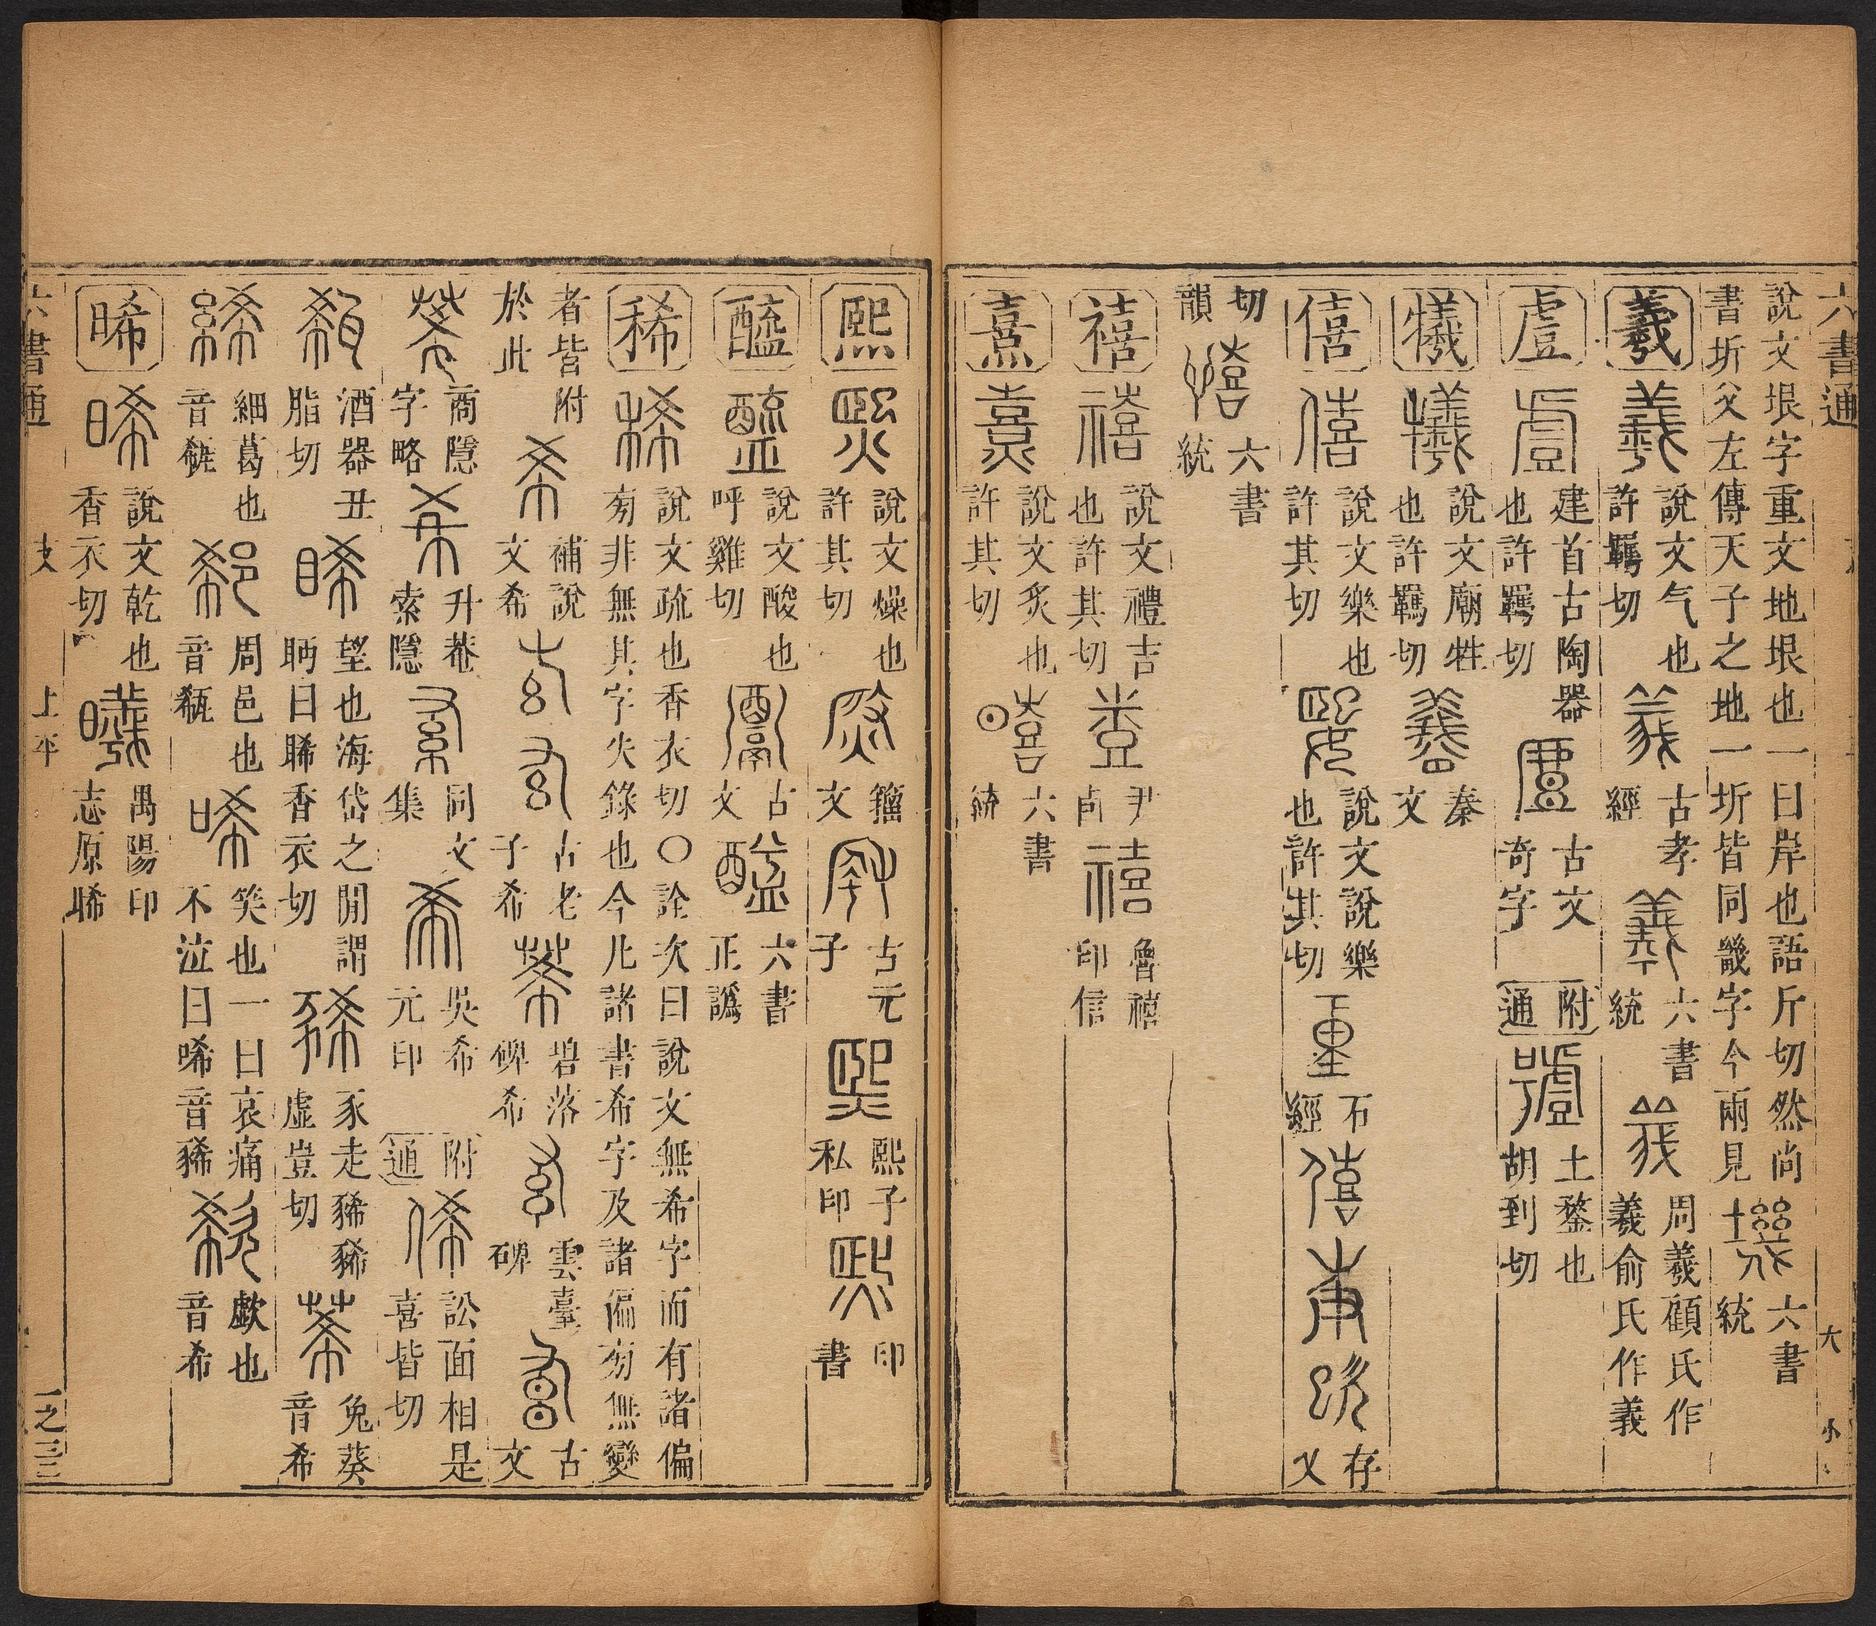 六書通
說文垠字重文地垠也一曰岸也語斤切然尚
書圻父左傳天子之地一圻皆同畿字今兩見
六書
統
羲
說文气也
許羈切
古孝
經
六書
統
周羲顧氏作
羲俞氏作義
䖒
建首古陶器
也許羈切
古文
奇字
附
通
土鍪也
胡到切
犧
說文廟牲
也許羈切
秦
文
僖
說文樂也
許其切
說文說樂
也許其切
石
經
存
乂
切
韻
六書
統
禧
說文禮吉
也許其切
尹
卣
魯禧
印信
熹
說文炙也
許其切
六書
統
熙
說文燥也
許其切
籀
文
古元
子
熙子
私印
印
書
醯
說文酸也
呼雞切
古
文
六書
正譌
稀
說文疏也香衣切〇詮次曰說文無希字而有諸偏
㫄非無其字失錄也今凡諸書希字及諸偏㫄無變
者皆附
於此
補說
文希
古老
子希
碧落
碑希
雲臺
碑
古
文
商隱
字略
升菴
索隱
同文
集
吳希
元印
附
通
訟面相是
喜皆切
酒器丑
脂切
望也海岱之閒謂
眄曰睎香衣切
豕走豨豨
虛豈切
兔葵
音希
細葛也
音
周邑也
音
笑也一曰哀痛
不泣曰唏音豨
歔也
音希
晞
說文乾也
香衣切
禺陽印
志原晞
六書通
支
上平
一之三